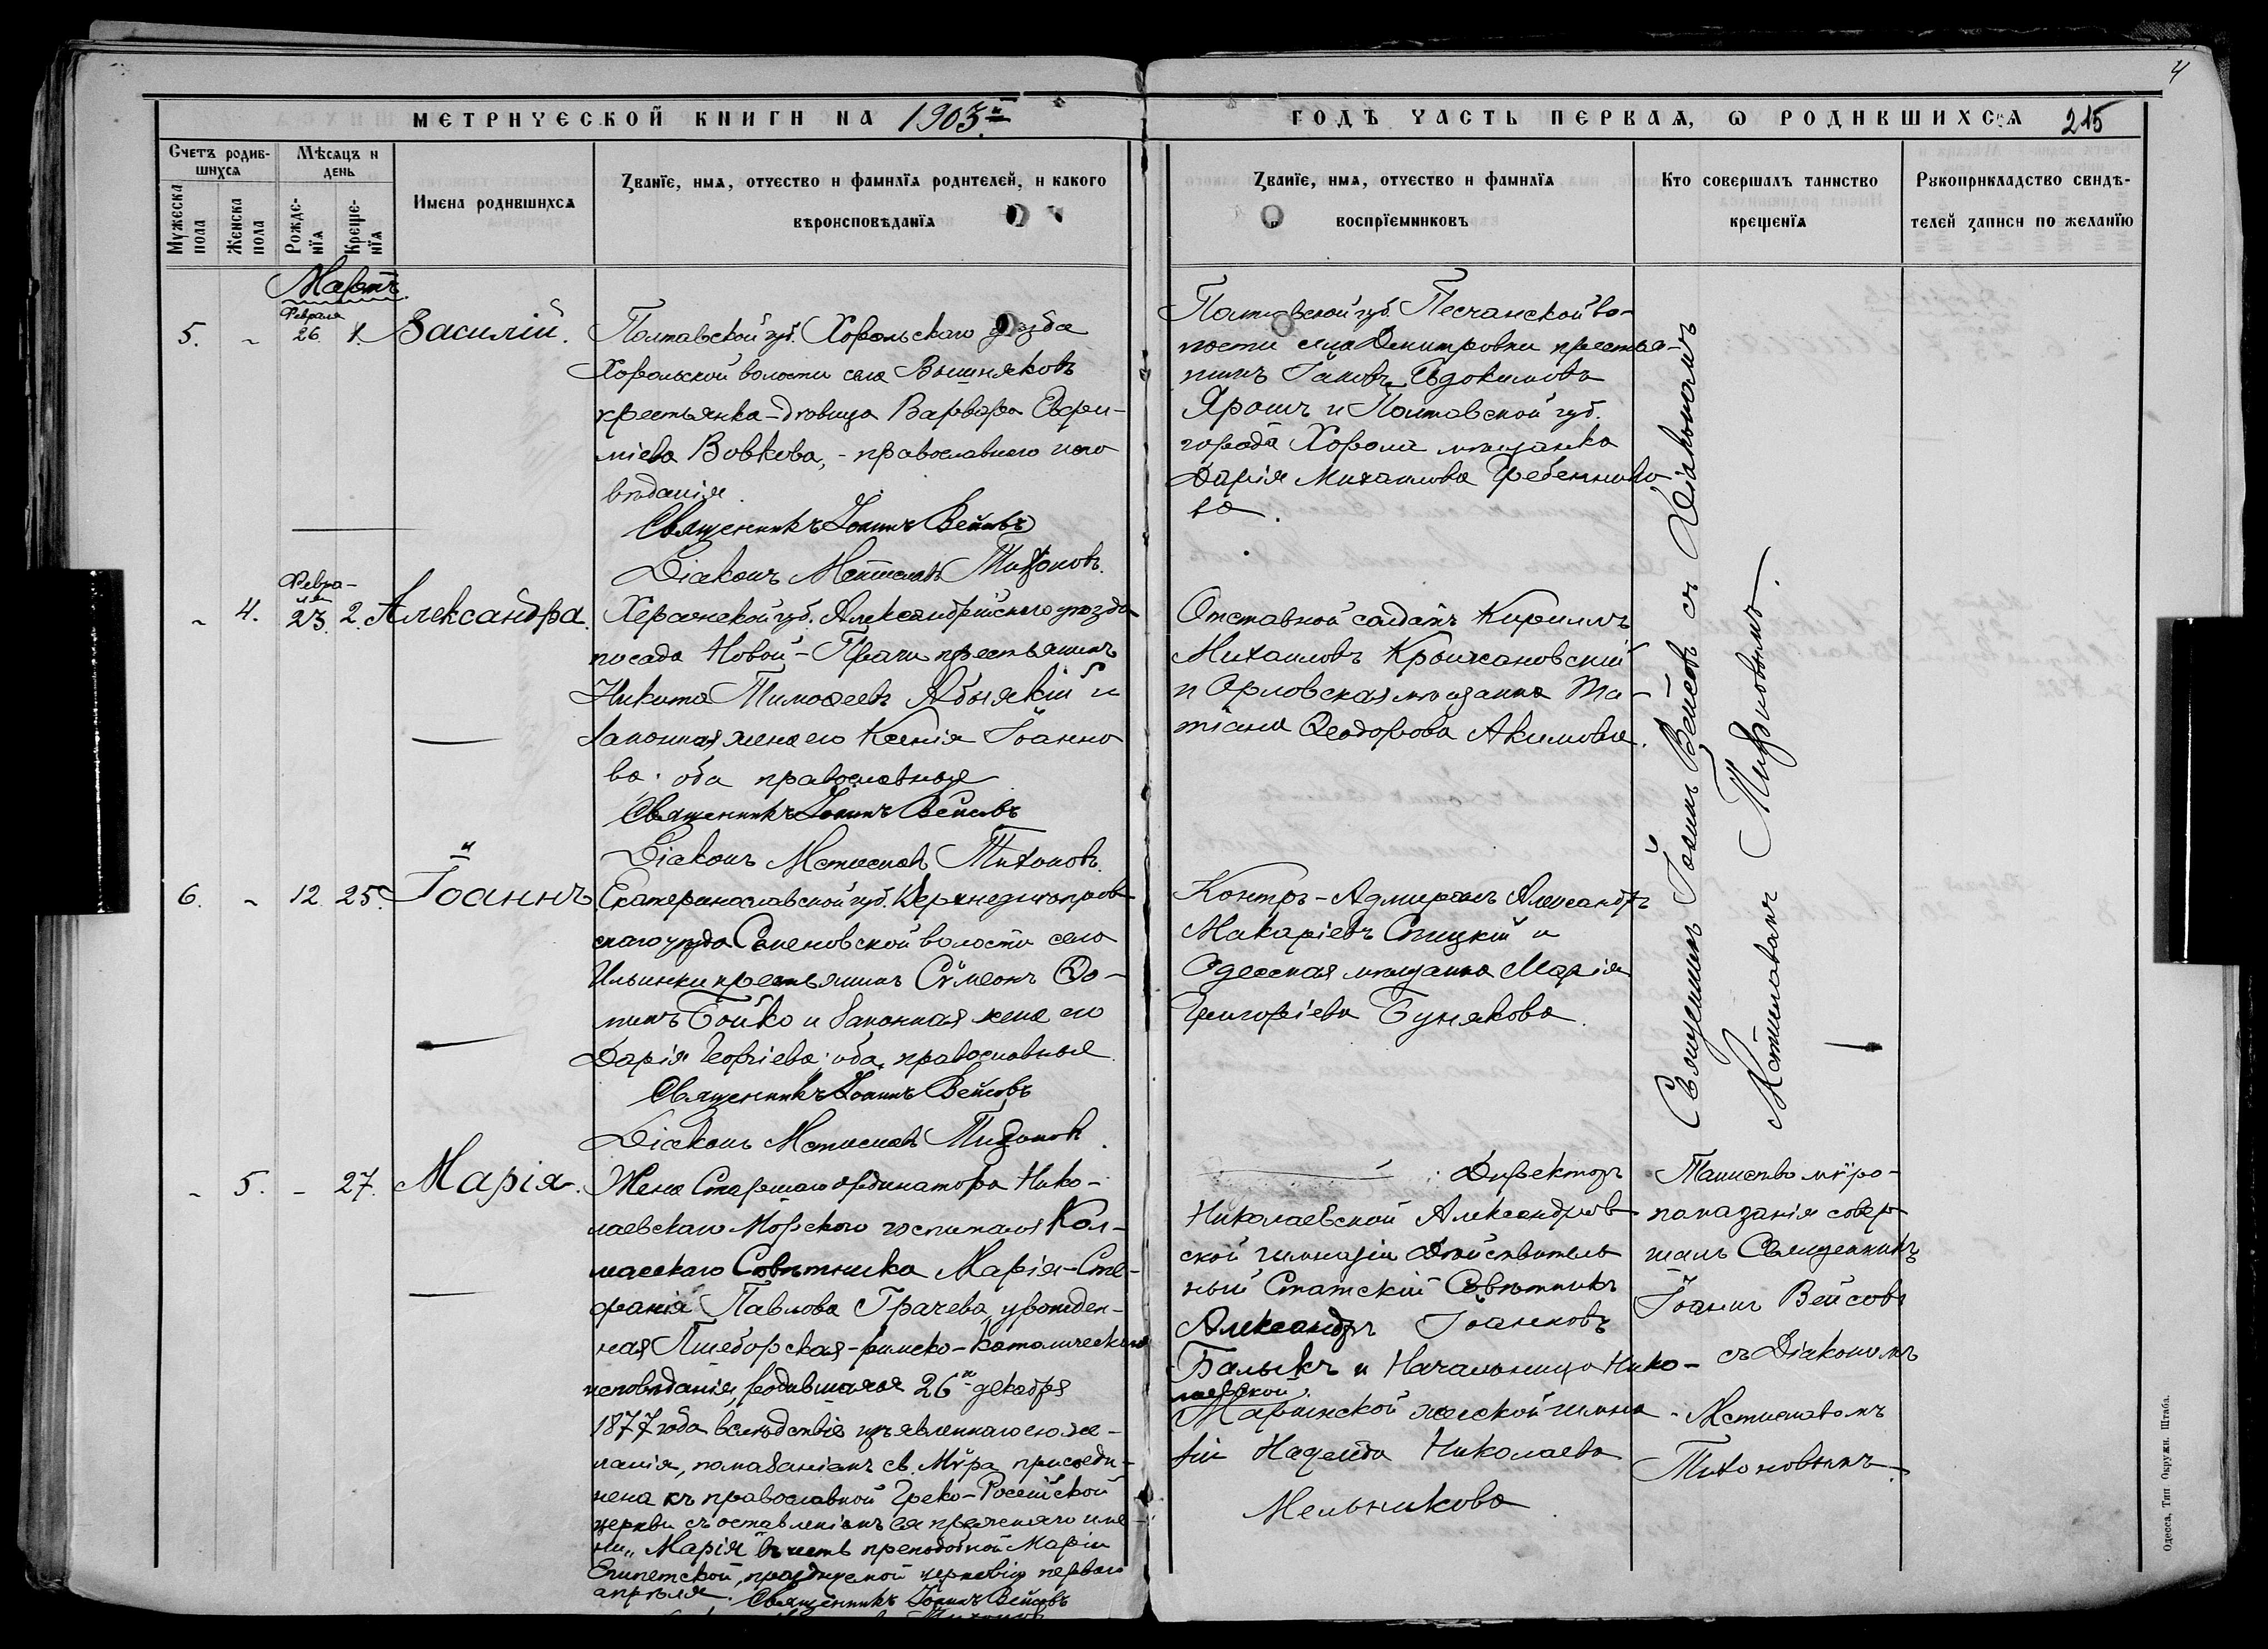 4
МЕТРИЧЕСКОЙ КНИГИ НА 1903й
ГОДЪ ЧАСТЬ ПЕРВАЯ, Ѡ РОДИВШИХСЯ 215
Счетъ родив-
шихся
Мужеска
пола
Женска
пола
Мѣсяцъ и
день
Рожде-
нїя
Креще-
нїя
Имена родившихся
Званїе, имя, отчество и фамилїя родителей, и какого
вѣроисповѣданїя
Званїе, имя, отчество и фамилїя
воспрїемниковъ
Кто совершалъ таинство
крещенїя
Рукоприкладство свидѣ-
телей записи по желанїю
Мартъ
Февраля
5. - 26. 1. Василій.
Полтавской губ. Хорольскаго уѣзда
Хорольской волости села Вишняковъ
крестьянка-дѣвица Варвара Евфи-
міева Вовкова, - православнаго испо
вѣданія.
Священникъ Іоаннъ Вейсовъ
Діаконъ Мстиславъ Тихоновъ.
Полтавской губ. Песчанской во-
лости села Димитровки крестья-
нинъ Іаковъ Евдокимовъ
Ярошъ и Полтавской губ.
города Хорола мѣщанка
Дарія Михаилова Гребенников
ва.
Священникъ Іоаннъ Вейсовъ съ Діакономъ
Мстиславомъ Тихоновымъ.
Февра-
ля
- 4. 23. 2. Александра.
Херсонской губ. Александрійскаго уѣзда
посада Новой-Праги крестьянинъ
Никита Тимоѳеевъ и
законная жена его Ксенія Іоанно
ва. оба православные
Священникъ Іоаннъ Вейсовъ
Діаконъ Мстиславъ Тихоновъ.
Отставной солдатъ Кириллъ
Михаиловъ Крыжановскій
и Орловская мѣщанка Та-
тіана Ѳеодорова Акимова.
и
6. - 12. 25. Іоаннъ
Екатеринославской губ. Верхнеднѣпров
скаго уѣзда Семеновской волости села
Ильинки крестьянинъ Сѵмеонъ Ѳо-
минъ Бойко и законная жена его
Дарія Георгіева; оба православные
Священникъ Іоаннъ Вейсовъ
Діаконъ Мстиславъ Тихоновъ.
Контръ-Адмиралъ Александръ
Макаріевъ Спицкій и
Одесская мѣщанка Марія
Григоріева Бунякова.
- 5. - 27. Марія.
Жена Старшаго ординатора Нико-
лаевскаго Морского госпиталя Кол-
лежскаго Совѣтника Марія-Сте-
фанія Павлова Грачева, урожден-
ная римско-католическаго
исповѣданія, родившаяся 26го декабря
1877 года вслѣдствіе изъявленнаго ею же-
ланія, помазаніемъ св. Мѵра присоеди-
нена къ православной Греко-Россійской
церкви съ оставленіемъ ея прежняго име
ни „Марія" въ честь преподобной Маріи
Египетской, празднуемой церковію перваго
апрѣля. Священникъ Іоаннъ Вейсовъ
Директоръ
Николаевской Александров
ской гимназіи Дѣйствитель
ный Статскій Совѣтникъ
Александръ Іоанновъ
Балыкъ и Начальница Нико-
лаевской
Маріинской женской гимна
зіи Надежда Николаева
Мельникова
Таинство мѵро-
помазанія совер
шалъ Священникъ
Іоаннъ Вейсовъ
съ Діакономъ
Мстиславомъ
Тихоновымъ.
Одесса, Тип. Окружн. Штаба.